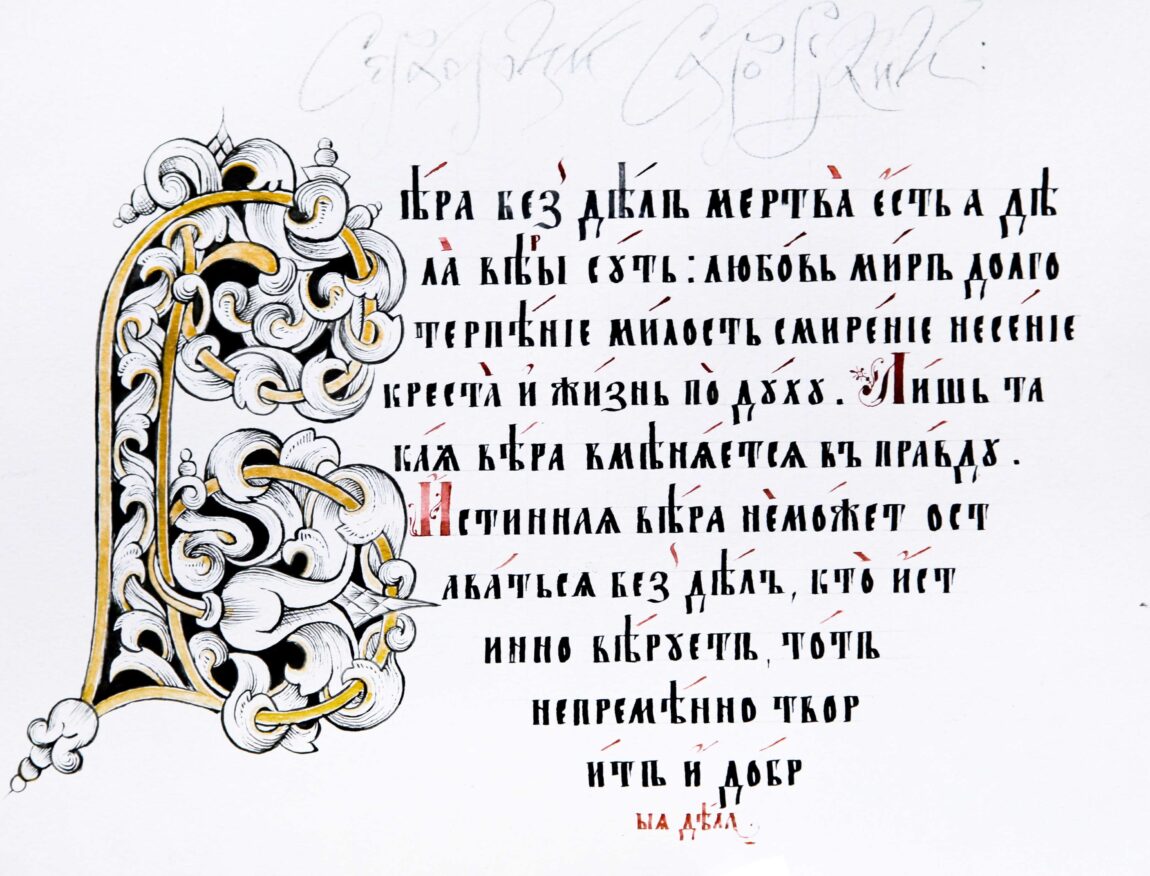 Серафим Саровский:
Вѣра без дѣлъ мертва̀ е҆́сть а дѣ
ла̀ вѣры сꙋ́ть: любо́вь ми́ръ долго
терпѣ́нїе ми́лость смире́нїе несе́нїе
креста̀ и҆ жи́знь по̀ дꙋ́хꙋ. Лишь та
ка́ѧ вѣ́ра вмѣнѧ́етсѧ въ пра́вдꙋ.
И҆́стиннаѧ вѣ́ра не мо́жет ост
ава́тьсѧ без дѣ́лъ, кто̀ и҆́ст
инно вѣ́рꙋетъ, то́тъ
непремѣ́нно твор
и́тъ и҆ до́бр
ыѧ дѣ́ла.